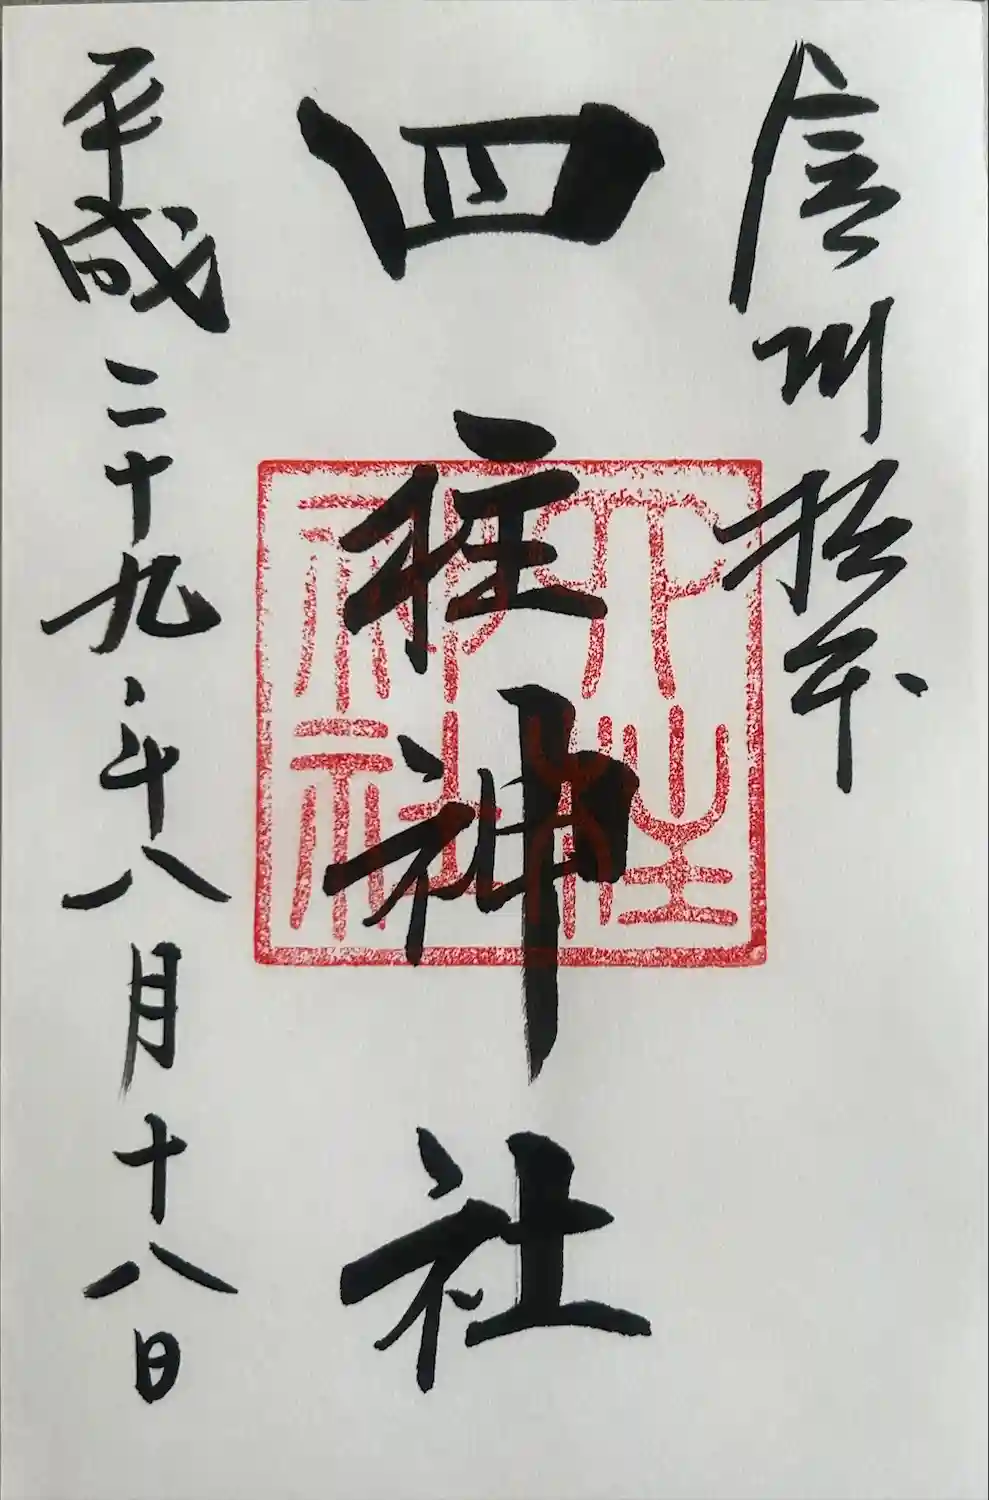 信州松本
四柱神社
四柱神社
平成二十九年八月十八日